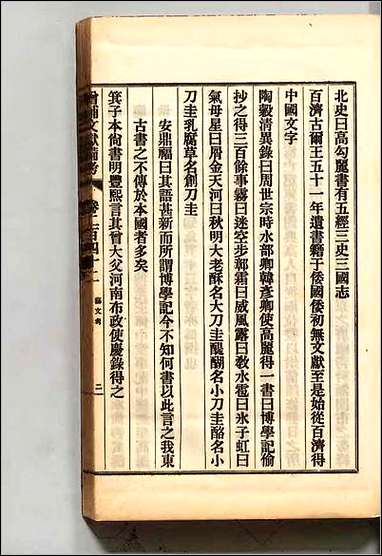 北史曰高勾麗書有五經三史三國志
百濟古爾王五十一年遺書籍于倭國倭初無文獻至是始從百濟得
中國文字
陶穀清異錄曰周世宗時水部卿韓彥卿使高麗得一書曰博學記偷
抄之得三百餘事霧曰迷空步鄣霜曰威風露曰敎水雹曰氷子虹曰
氣母星曰屑金天河曰秋明大老酥名大刀圭醍醐名小刀圭酪名小
刀圭乳腐草名創刀圭
安鼎福曰其語甚新而所謂博學記今不知何書以此言之我東
古書之不傳於本國者多矣
箕子本尙書明豐熙言其曾大父河南布政使慶錄得之
增補文獻備考 卷二百四十二 藝文考 二